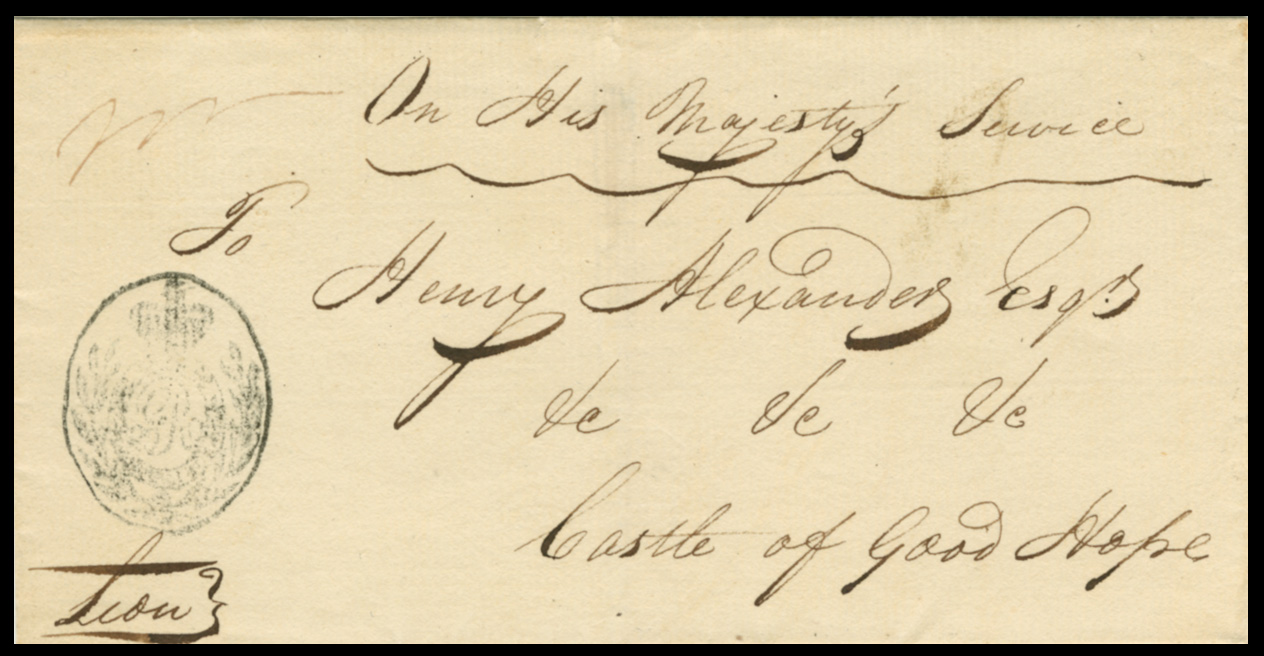 On His Majesty's Service
To
Henry Alexander Esqr
&c &c &c
Castle of Good Hope